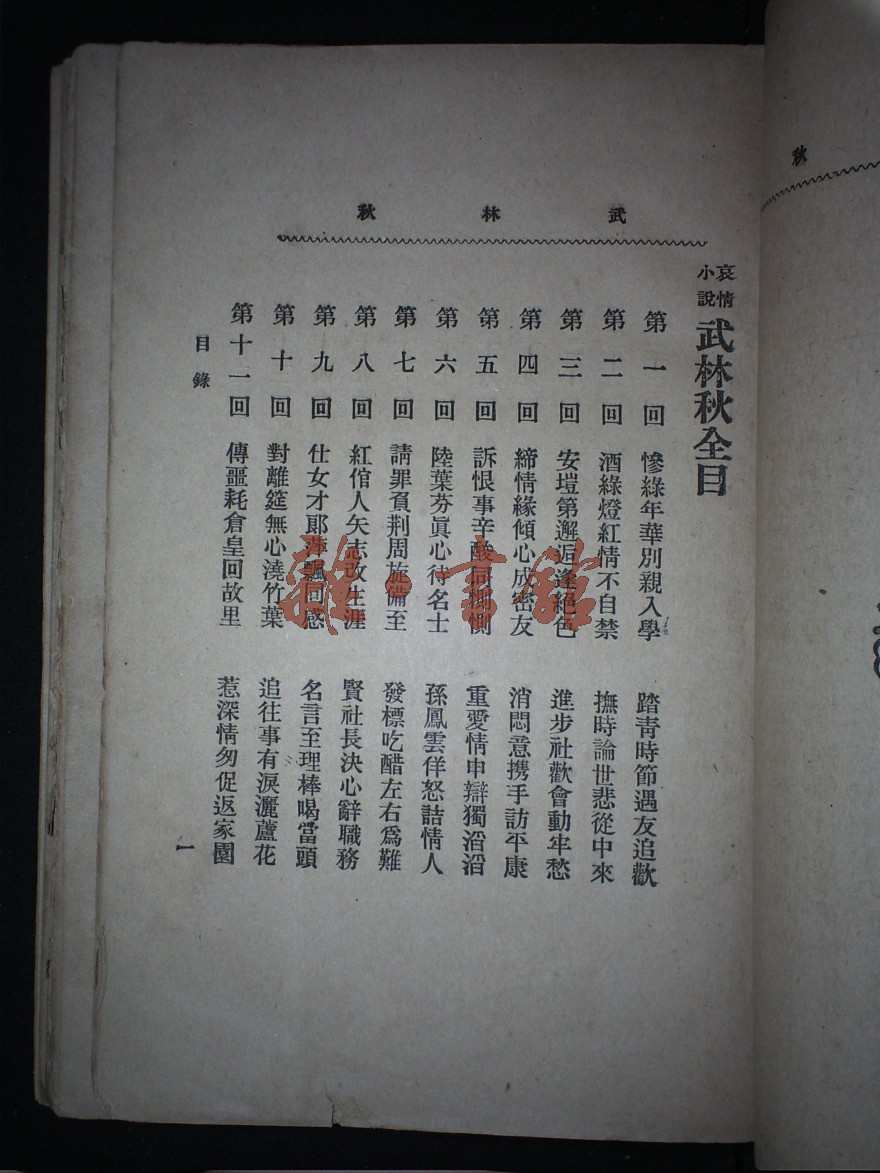 武林秋
哀情小說 武林秋全目
第一回 慘綠年華別親入學 踏青時節遇友追歡
第二回 酒綠燈紅情不自禁 撫時論世悲從中來
第三回 安塏第邂逅逢絕色 進步社歡會動牢愁
第四回 締情緣傾心成密友 消悶意携手訪平康
第五回 訴恨事辛酸同惻惻 重愛情申辯獨滔滔
第六回 陸葉芬眞心待名士 孫鳳雲佯怒詰情人
第七回 請罪負荆周旋備至 發標吃醋左右爲難
第八回 紅倌人矢志改生涯 賢社長決心辭職務
第九回 仕女才郞萍飄同感 名言至理棒喝當頭
第十回 對離筵無心澆竹葉 追往事有淚灑蘆花
第十一回 傳噩耗倉皇回故里 惹深情匆促返家園
目錄
一
秋
雜·書館